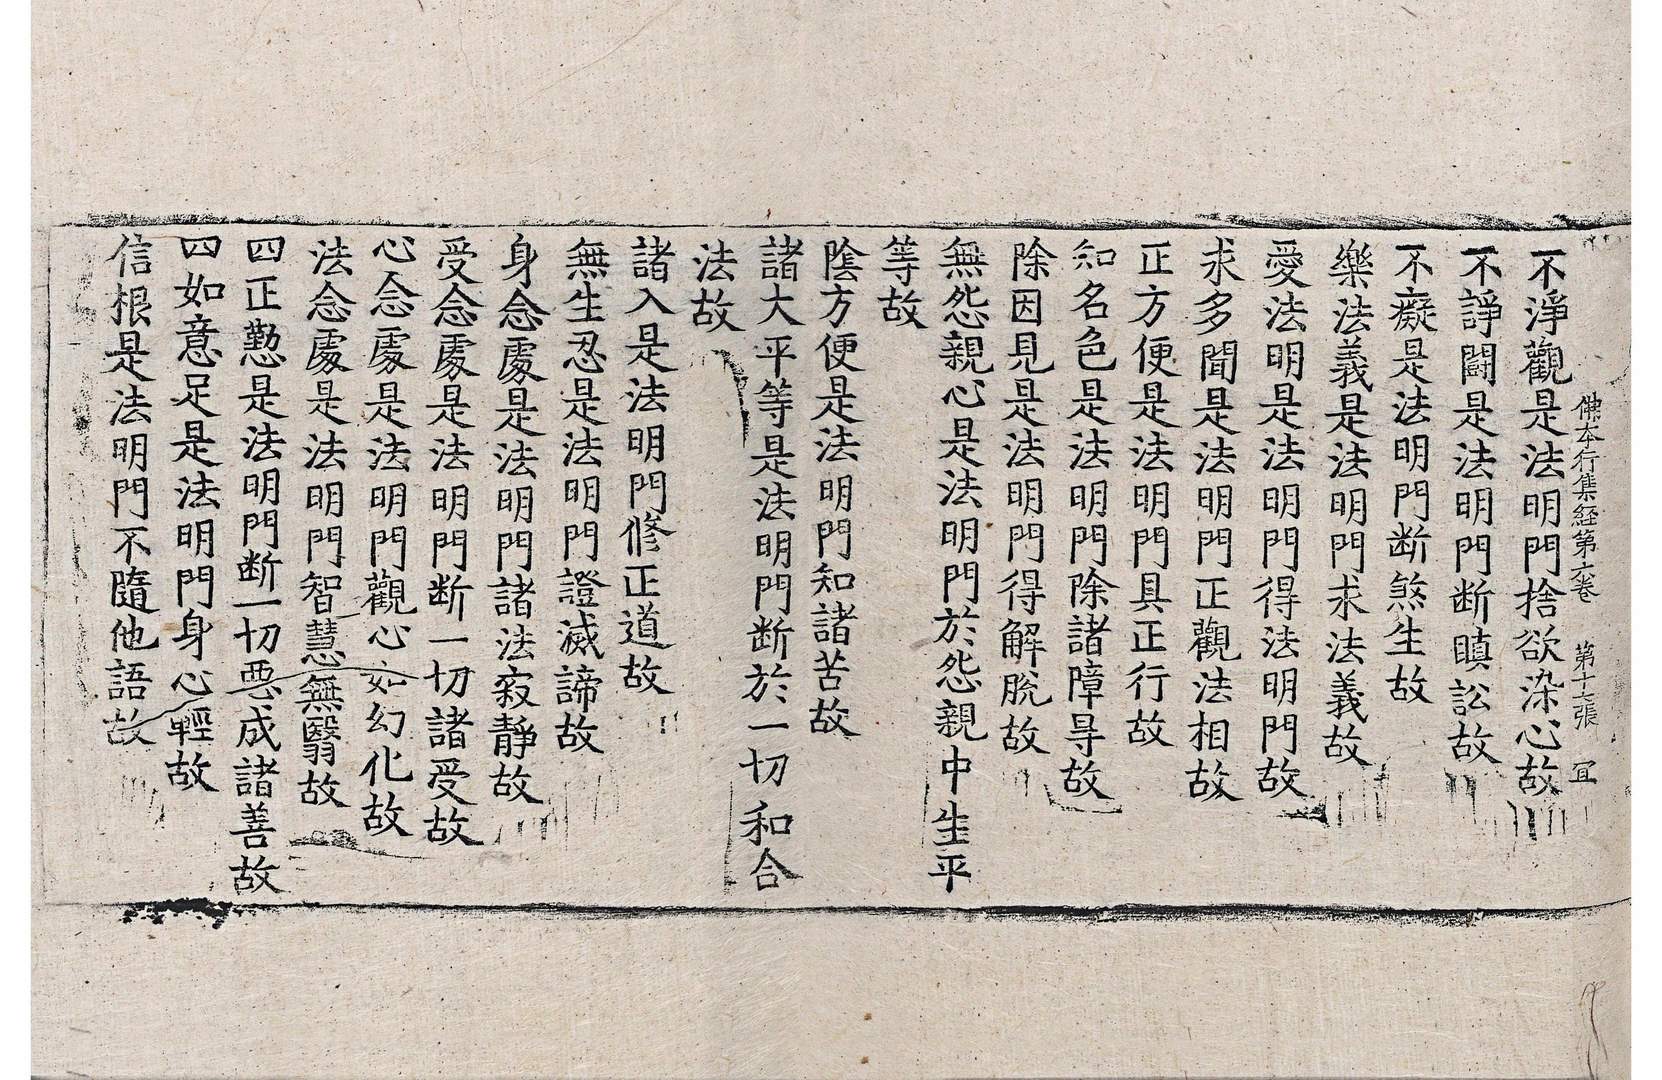 佛本行集経第六卷 第十七張 冝
不淨觀是法明門捨欲染心故
不諍鬪是法明門断瞋訟故
不癡是法明門断煞生故
樂法義是法明門求法義故
愛法明是法明門得法明門故
求多聞是法明門正觀法相故
正方便是法明門具正行故
知名色是法明門除諸障㝵故
除因見是法明門得解脱故
無怨親心是法明門於怨親中生平
等故
陰方便是法明門知諸苦故
諸大平等是法明門断於一切和合
法故
諸入是法明門修正道故
無生忍是法明門證滅諦故
身念處是法明門諸法寂靜故
受念處是法明門断一切諸受故
心念處是法明門觀心如幻化故
法念處是法明門智慧無翳故
四正懃是法明門断一切惡成諸善故
四如意足是法明門身心輕故
信根是法明門不隨他語故